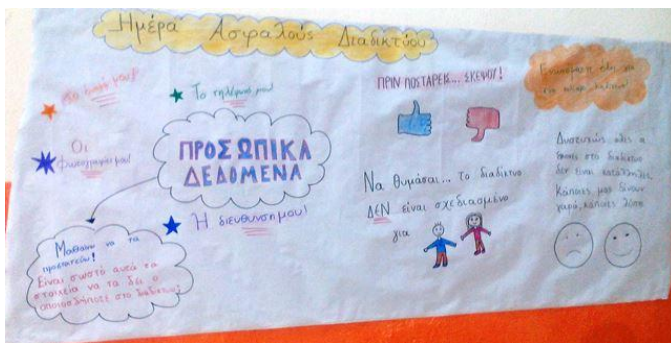 Ημέρα Ασφαλούς Διαδικτύου
Το όνομά μου!
Το τηλέφωνό μου!
Οι
φωτογραφίες μου!
ΠΡΟΣΩΠΙΚΑ
ΔΕΔΟΜΕΝΑ
Η διεύθυνση μου!
Μαθαίνω να τα
προστατεύω!
Είναι σωστό αυτά τα
στοιχεία να τα δει ο
οποιοσδήποτε στο διαδίκτυο;
ΠΡΙΝ ΠΟΣΤΑΡΕΙΣ... ΣΚΕΨΟΥ!
Να θυμάσαι... το διαδίκτυο
ΔΕΝ είναι σχεδιασμένο
για
Δυστυχώς, όλες οι
στο διαδίκτυο
δεν είναι κατάλληλες.
Κάποιες μας δίνουν
χαρά, κάποιες λύπη